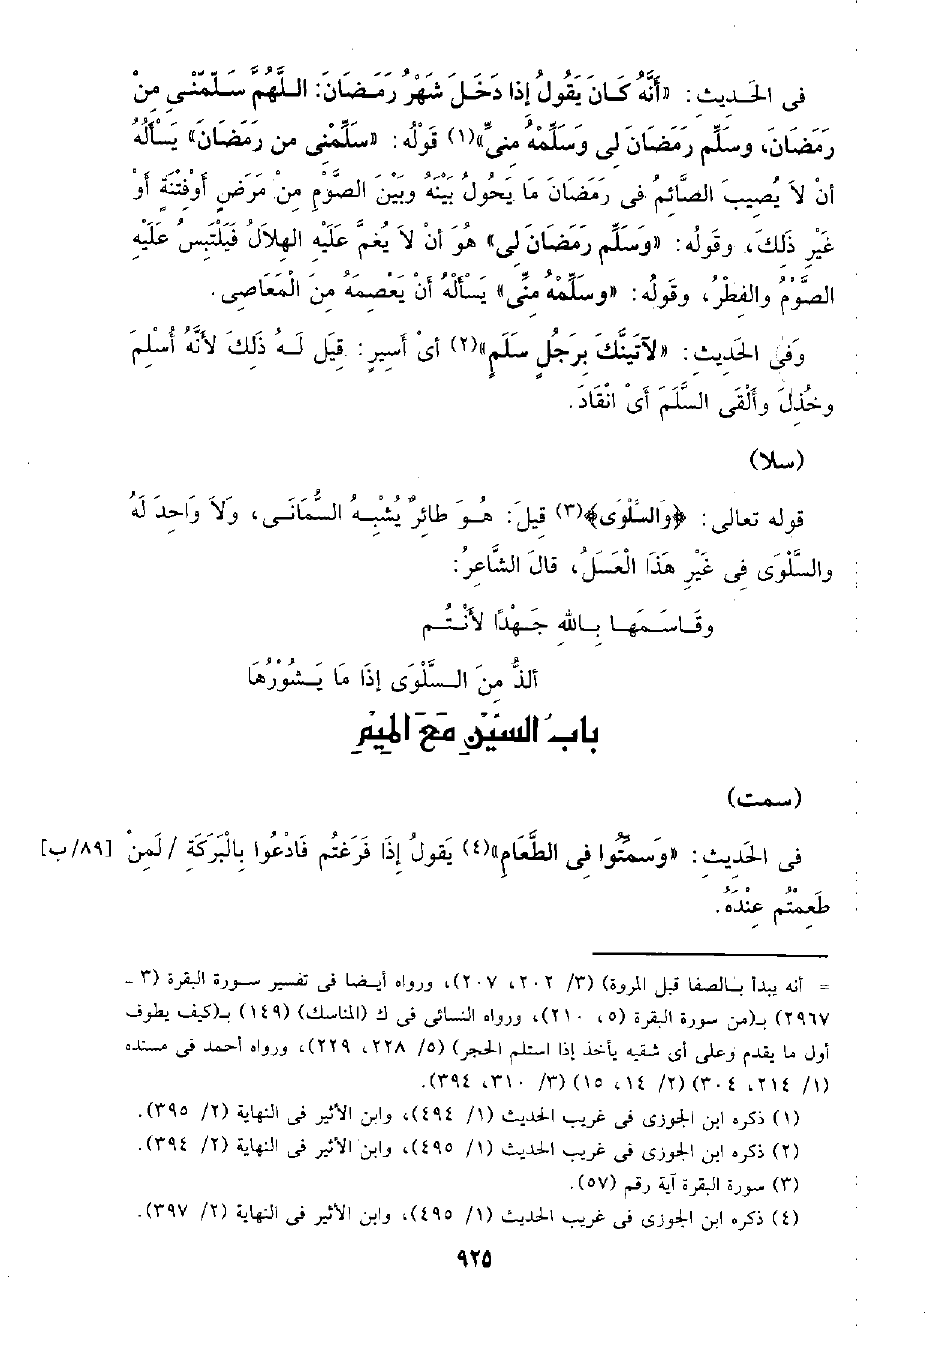 فى الحديث: «أنَّهُ كَانَ يَقُولُ إذا دَخَلَ شَهْرُ رَمَضَانَ: اللَّهُمَّ سَلِّمْنى مِنْ
رَمَضَانَ، وسَلِّم رَمَضَانَ لى وَسَلِّمْهُ مِنىِّ»(١) قَوْلُه: «سَلِّمْنى من رَمَضَانَ» يَسألُهُ
أنْ لاَ يُصِيبَ الصَّائِمُ فى رَمَضَانَ مَا يَحُولُ بَيْنَهُ وبَيْنَ الصَّوْمِ مِنْ مَرَضٍ أوْفِتْنَةٍ أوْ
غَيْرِ ذَلِكَ، وقولُه: «وَسَلِّم رَمَضَانَ لى» هُوَ أنْ لاَ يُغمَّ عَلَيْهِ الهِلاَلُ فَيَلْتَبِسُ عَلَيْهِ
الصَّوْمُ والفِطْرُ، وقولُه: «وسَلِّمْهُ مِنِّى» يَسْألُهُ أنْ يَعْصِمَهُ مِنَ الْمَعَاصِى.
وَفى الحَدِيث: «لآتِينَّكَ بِرَجُلٍ سَلَمٍ»(٢) أىْ أسيرٍ: قِيَل لَهُ ذَلِكَ لأنَّهُ أُسْلِمَ
وخُذِلَ وألْقَى السَّلَمَ أىْ انْقَادَ.
(سلا)
قوله تعالى: ﴿وَالسَّلْوَى﴾(٣) قِيلَ: هُوَ طائِرٌ يُشْبِهُ السُّمَانَى، وَلاَ وَاحِدَ لَهُ
والسَّلْوَى فِى غَيْرِ هَذَا الْعَسَلُ، قالَ الشَّاعِرُ:
وقَاسَمَهَا بِاللهِ جَهْدًا لأَنْتُم
ألذُّ مِنَ السَّلْوَى إذَا مَا يَشُوْرُهَا
بابُ السِّيْنِ مَعَ المِيْمِ
(سمت)
فى الحَدِيث: «وَسَمِّتُوا فى الطَّعَامِ»(٤) يَقولُ إذَا فَرَغتُم فَادْعُوا بِالْبَرَكَةِ / لَمِنْ [٨٩/ب]
طَعِمتُم عِنْدَهُ.
= أنه يبدأ بالصفا قبل المروة) (٣/ ٢٠٢، ٢٠٧)، ورواه أيضا فى تفسير سورة البقرة (٣ -
٢٩٦٧) بـ(من سورة البقرة (٥، ٢١٠)، ورواه النسائى فى ك (المناسك) (١٤٩) بـ(كيف يطوف
أول ما يقدم وعلى أى شقيه يأخذ إذا استلم الحجر) (٥/ ٢٢٨، ٢٢٩)، ورواه أحمد فى مسنده
(١/ ٢١٤، ٣٠٤) (٢/ ١٤، ١٥) (٣/ ٣١٠، ٣٩٤).
(١) ذكره ابن الجوزى فى غريب الحديث (١/ ٤٩٤)، وابن الأثير فى النهاية (٢/ ٣٩٥).
(٢) ذكره ابن الجوزى فى غريب الحديث (١/ ٤٩٥)، وابن الأثير فى النهاية (٢/ ٣٩٤).
(٣) سورة البقرة آية رقم (٥٧).
(٤) ذكره ابن الجوزى فى غريب الحديث (١/ ٤٩٥)، وابن الأثير فى النهاية (٢/ ٣٩٧).
٩٢٥